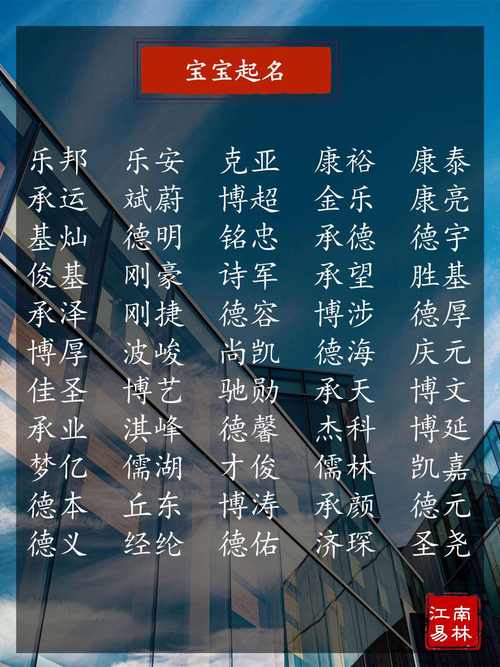 宝宝起名
乐邦 乐安 克亚 康裕 康泰
承运 斌蔚 博超 金乐 康亮
基灿 德明 铭忠 承德 德宇
俊基 刚豪 诗军 承望 胜基
承泽 刚捷 德容 博涉 德厚
博厚 波峻 尚凯 德海 庆元
佳圣 博艺 驰勋 承天 博文
承业 淇峰 德馨 杰科 博延
梦亿 儒湖 才俊 儒林 凯嘉
德本 丘东 博涛 承颜 德元
德义 经纶 德佑 济琛 圣尧
江南
易林